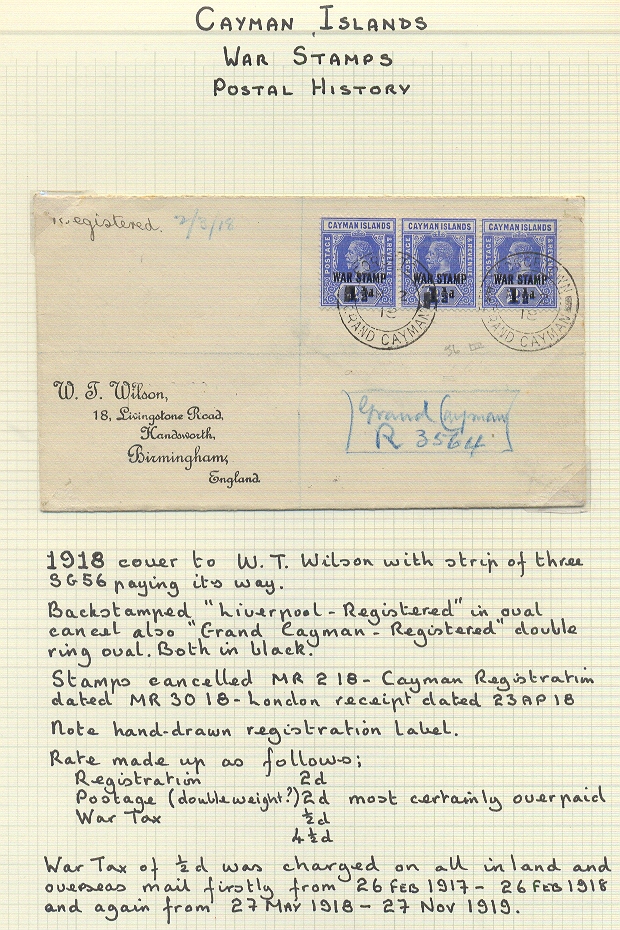 CAYMAN ISLANDS
WAR STAMPS
POSTAL HISTORY
Registered. 2/3/18
CAYMAN ISLANDS CAYMAN ISLANDS CAYMAN ISLANDS
POSTAGE & REVENUE POSTAGE & REVENUE POSTAGE & REVENUE
WAR STAMP WAR STAMP WAR STAMP
1½d 1½d 1½d
18 18
GRAND CAYMAN GRAND CAYMAN
W. T. Wilson,
18, Livingstone Road,
Handsworth,
Birmingham,
England.
Grand Cayman
R 3564
1918 cover to W. T. Wilson with strip of three
SG56 paying its way.
Backstamped "Liverpool - Registered" in oval
cancel also "Grand Cayman - Registered" double
ring oval. Both in black.
Stamps cancelled MR 2 18 - Cayman Registration
dated MR 30 18 - London receipt dated 23 AP 18
Note hand-drawn registration label.
Rate made up as follows;
Registration 2d
Postage (double weight?) 2d most certainly overpaid
War Tax ½d
4½d
War Tax of ½d was charged on all inland and
overseas mail firstly from 26 FEB 1917 - 26 FEB 1918
and again from 27 MAY 1918 - 27 NOV 1919.